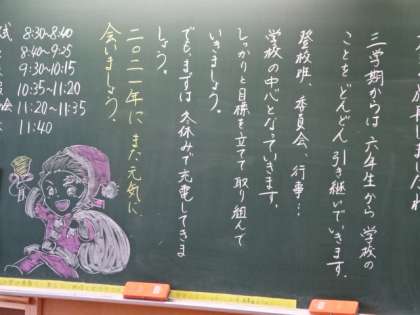 三学期からは六年生から学校の
ことをどんどん引き継いでいきます。
登校班、委員会、行事…
学校の中心となっていきます。
しっかりと目標を立てて取り組んで
いきましょう。
でもまずは冬休みで充電してきま
しょう。
二〇二一年にまた元気に
会いましょう。
式 8:30-8:40
8:40~9:25
9:30~10:15
10:35~11:20
会 11:20~11:35
11:40